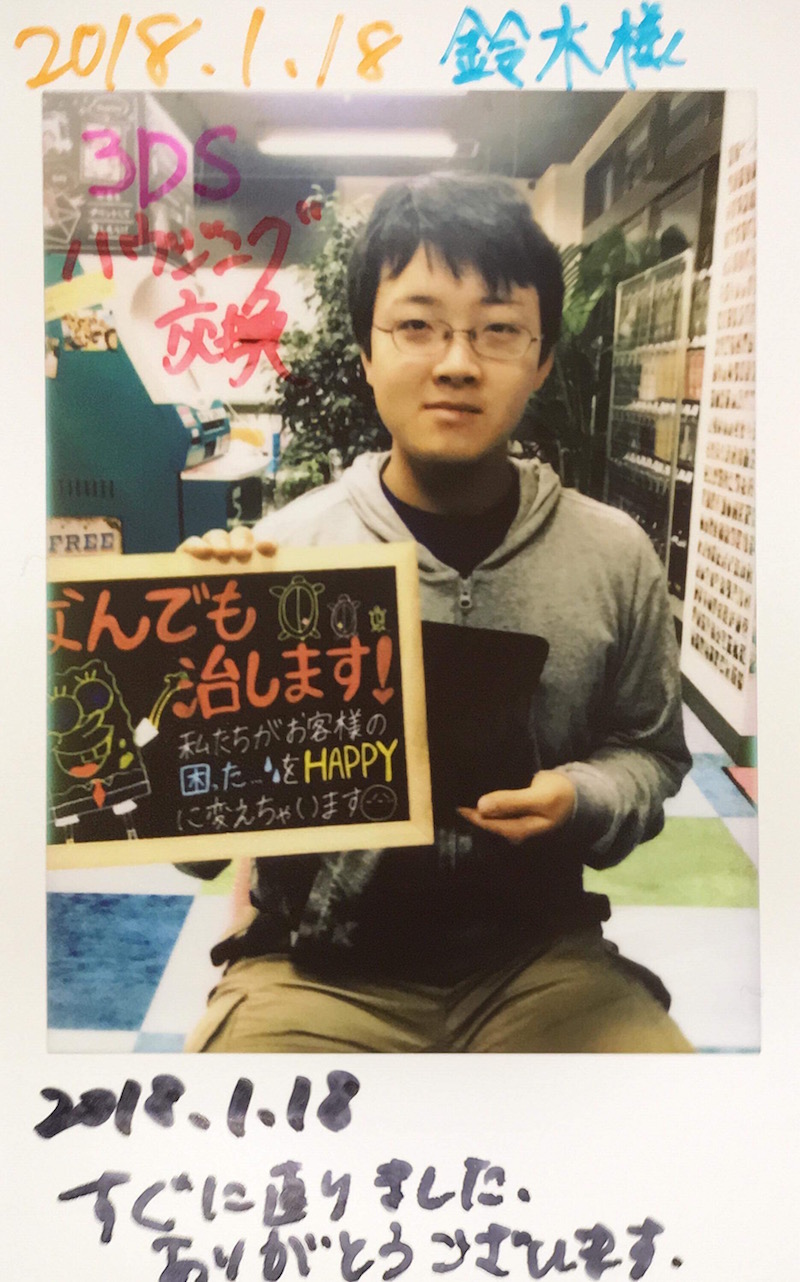 2018.1.18 鈴木様
3DS
ハウジング
交換
FREE
なんでも
治します!
私たちがお客様の
困った...をHAPPY
に変えちゃいます
2018.1.18
すぐに直りました。
ありがとうございます。